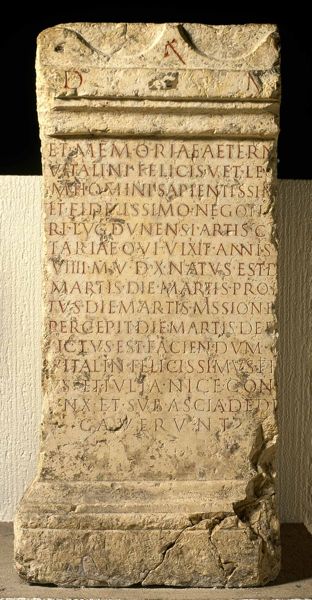 A
D M
ET MEMORIAE AETERN
VITALINI·FELICIS·VET·LE
M·HOMINI·SAPIENTISSIM
ET FIDELISSIMO·NEGOTI
RI·LVGDVNENSI·ARTIS·C
TARIAE·QVI·VIXIT·ANNIS
VIIII·M·V·D·X·NATVS·EST·D
MARTIS·DIE·MARTIS·PRO
TVS·DIE·MARTIS·MISSION
PERCEPIT·DIE·MARTIS·DE
ICTVS·EST·FACIENDVM
VITALIN·FELICISSIMVS·FI
VS·ET·IVLIA·NICE·CON
NX·ET·SVB·ASCIA·DED
CAVERVNT